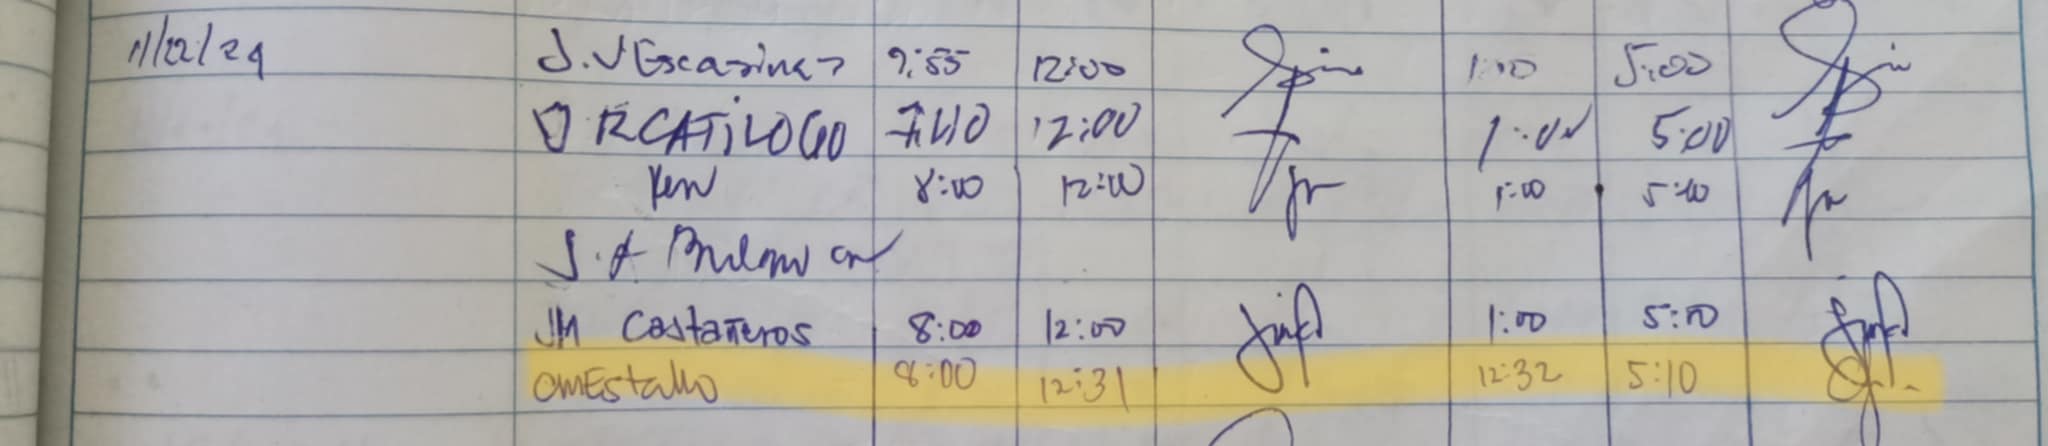 11/22/24 J. V Escarinas 7:55 12:00 1:00 5:00
RCATILOGO 7:40 12:00 1:00 5:00
Ken 8:00 12:00 1:00 5:10
J. A
JM Castañeros 8:00 12:00 1:00 5:10
OMEstallo 8:00 12:31 12:32 5:10